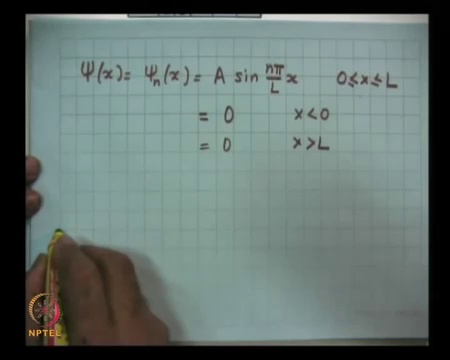 Ψ(x) = Ψn(x) = A sin nπ/L x 0≤x≤L
= 0 x<0
= 0 x>L
NPTEL